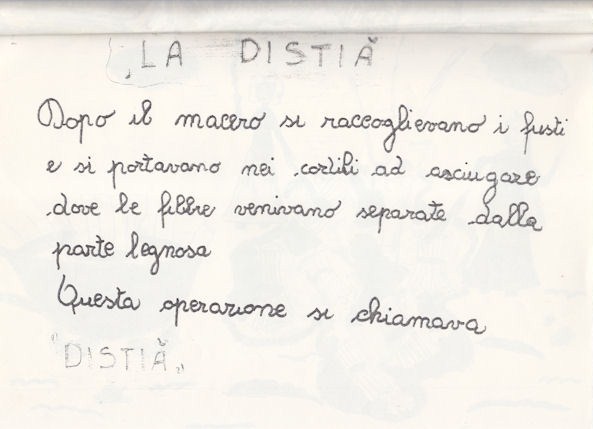 LA DISTIĂ
Dopo il macero si raccoglievano i fusti
e si portavano nei cortili ad asciugare
dove le fibbre venivano separate dalla
parte legnosa
Questa operazione si chiamava
"DISTIĂ"